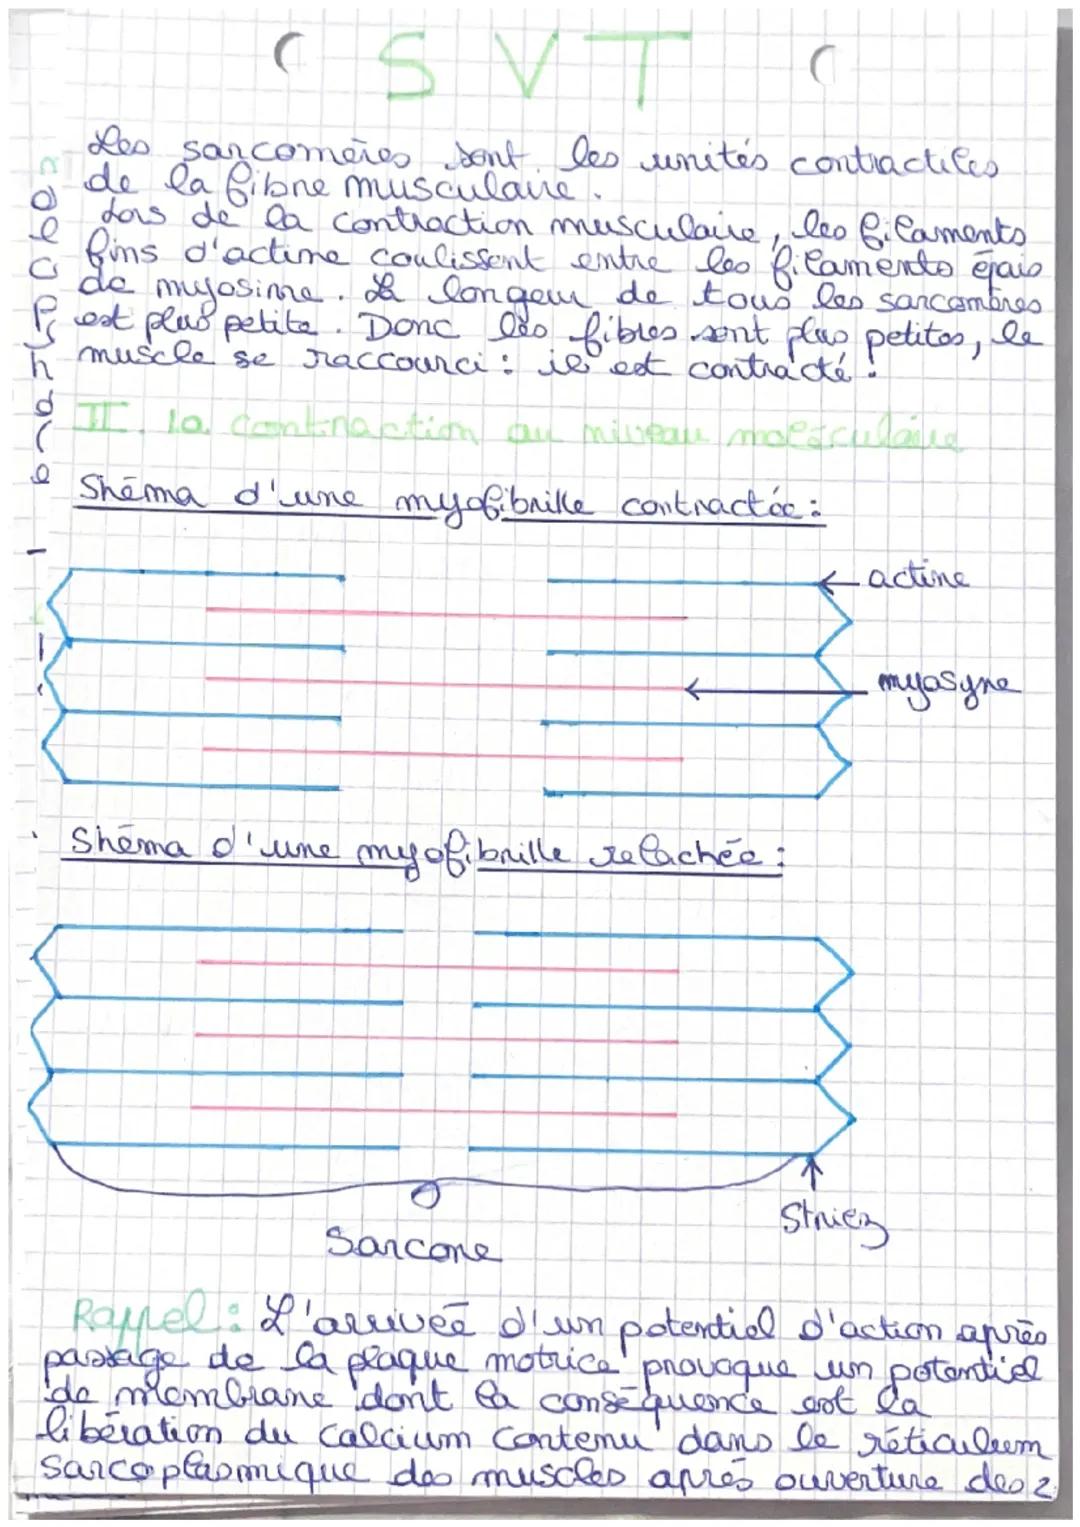 ( S V T (
Les sarcomères sont les unités contractiles
de la fibre musculaire.
Lors de la contraction musculaire, les filaments
fins d'actine coulissent entre les filaments épais
de myosinne. La longeur de tous les sarcombres
est plus petite. Donc les fibles sont plus petites, le
muscle se raccourci : il est contracté !
II. la contraction au niveau moléculaire
Shéma d'une myofibrille contractée :
actine
myosyne
Shéma d'une myofibrille relachée :
Striez
Sarcone
Rappel : L'arrivée d'un potentiel d'action après
passage de la plaque motrice provoque un potentiel
de membrane dont la conséquence est la
libération du calcium contenu dans le réticuleum
sarcoplasmique des muscles après ouverture des 2